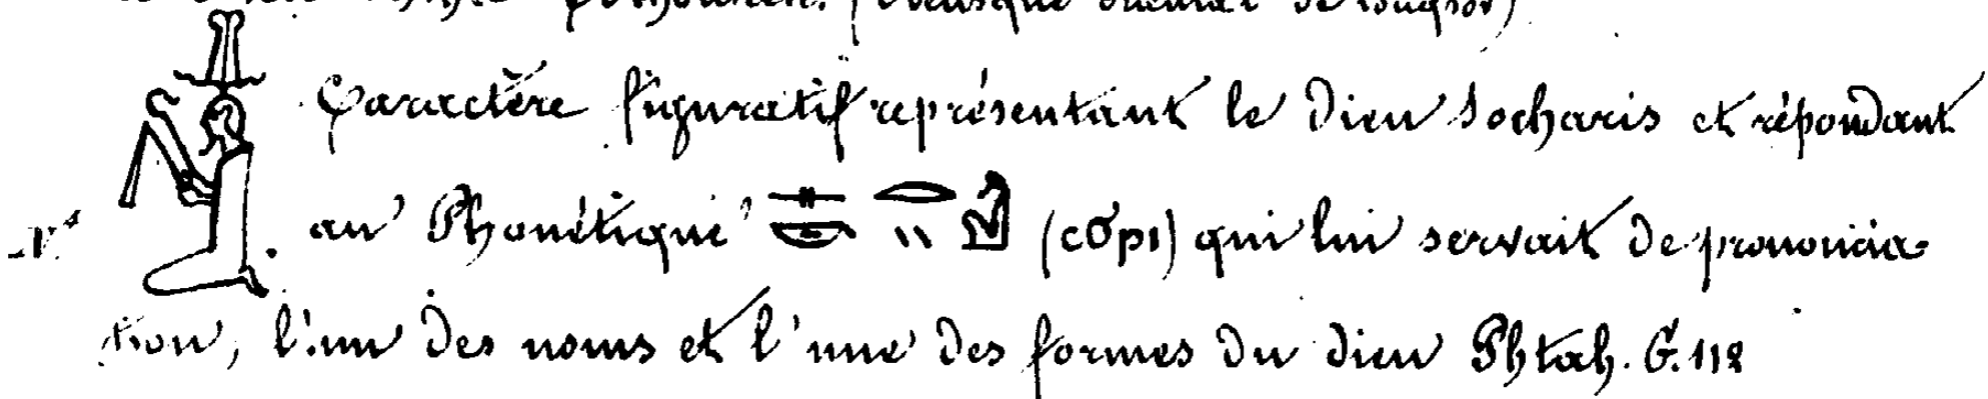 (Obélisque oriental de Louqsor)
Caractère figuratif représentant le Dieu Socharis et répondant
au Phonétique (ⲥϭⲣⲓ) qui lui servait de prononcia-
tion, l'un des noms et l'une des formes du dieu Phtah. G. 112